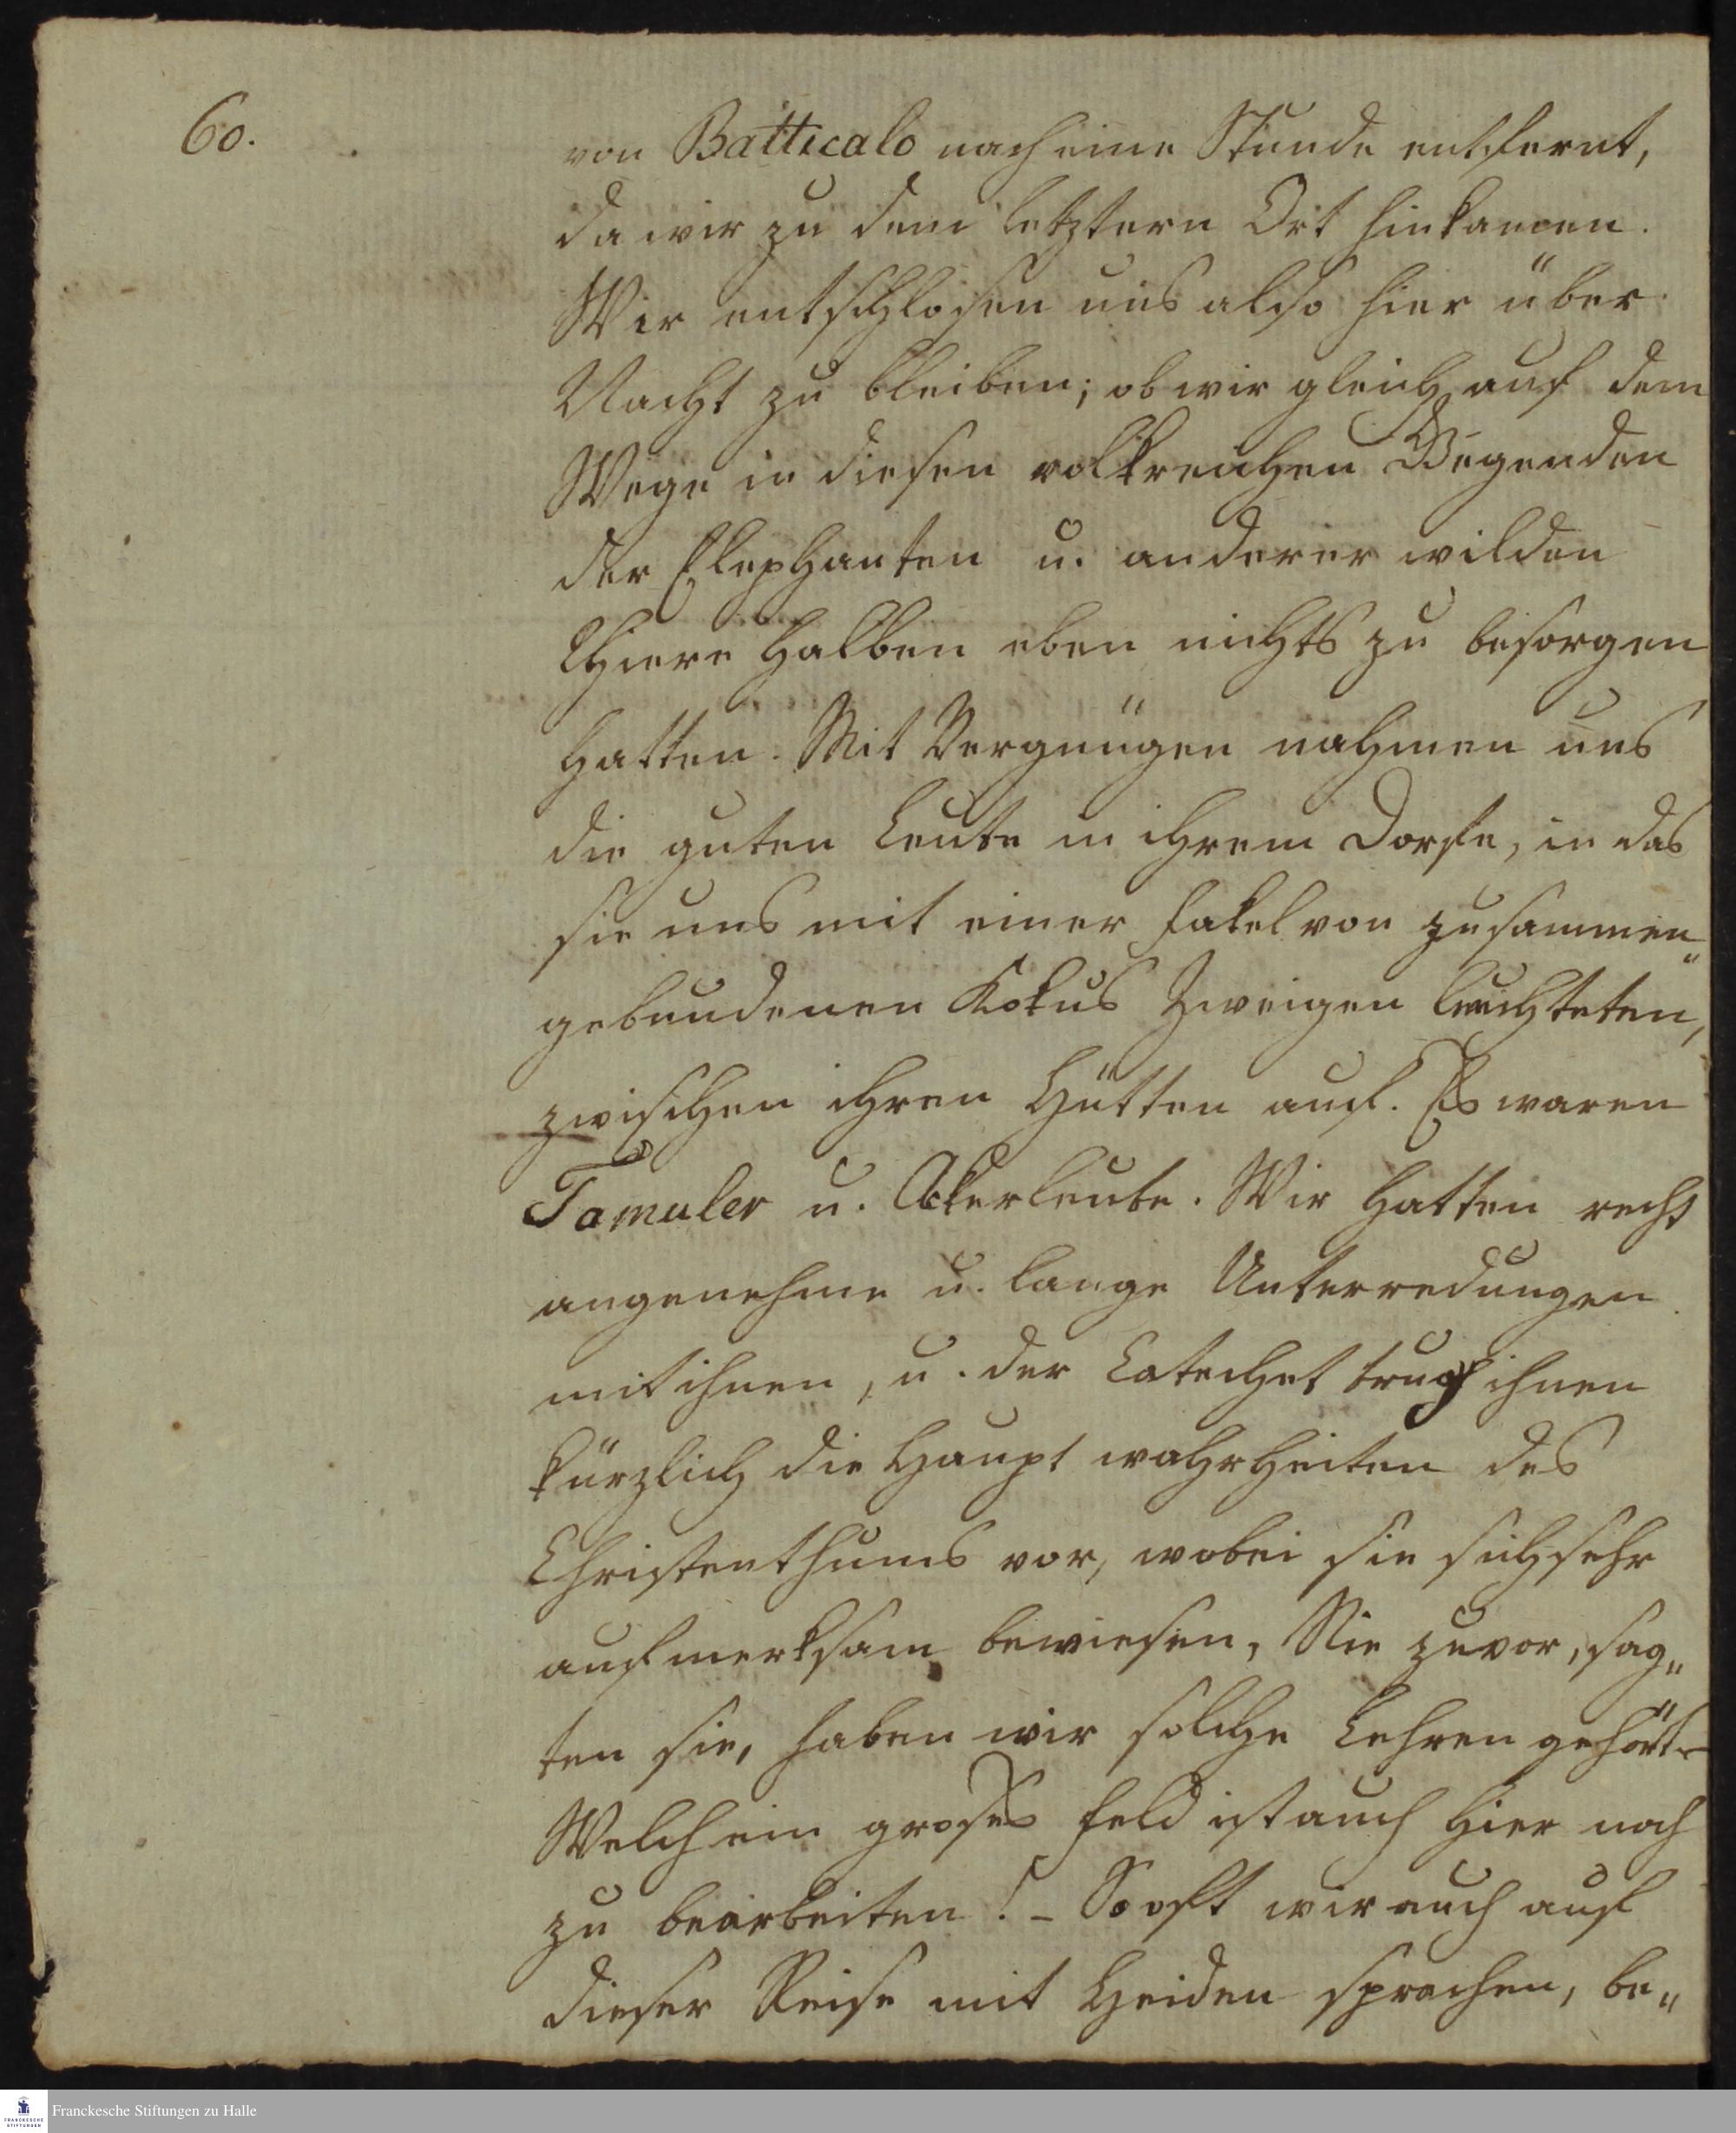 60.
von Batticalo noch eine Stunde entfernt,
da wir zu dem letztern Ort hinkamen.
Wir entschlosen uns also hier über
Nacht zu bleiben; ob wir gleich auf dem
Wege in diesen volkreichen Gegenden
der Elephanten u. anderer wilden
Thiere halben eben nichts zu besorgen
hatten. Mit Vergnügen nahmen uns
die guten Leute in ihrem Dorfe, in das
sie uns mit einer Fakel von zusammen„
gebundenen Kokus Zweigen leuchteten,
zwischen ihren Hütten auf. Es waren
Tamuler u. Akerleute. Wir hatten recht
angenehme u. lange Unterredungen
mit ihnen, u. der Catechet trug ihnen
kürzlich die Haupt wahrheiten des
Christenthums vor, wobei sie sich sehr
aufmerksam bewiesen. Nie zuvor, sag„
ten sie, haben wir solche Lehren gehört.
Welch ein groses Feld ist auch hier noch
zu bearbeiten! - So oft wir auch auf
dieser Reise mit Heiden sprachen, be„
Franckesche Stiftungen zu Halle
FRANCKESCHE
STIFTUNGEN